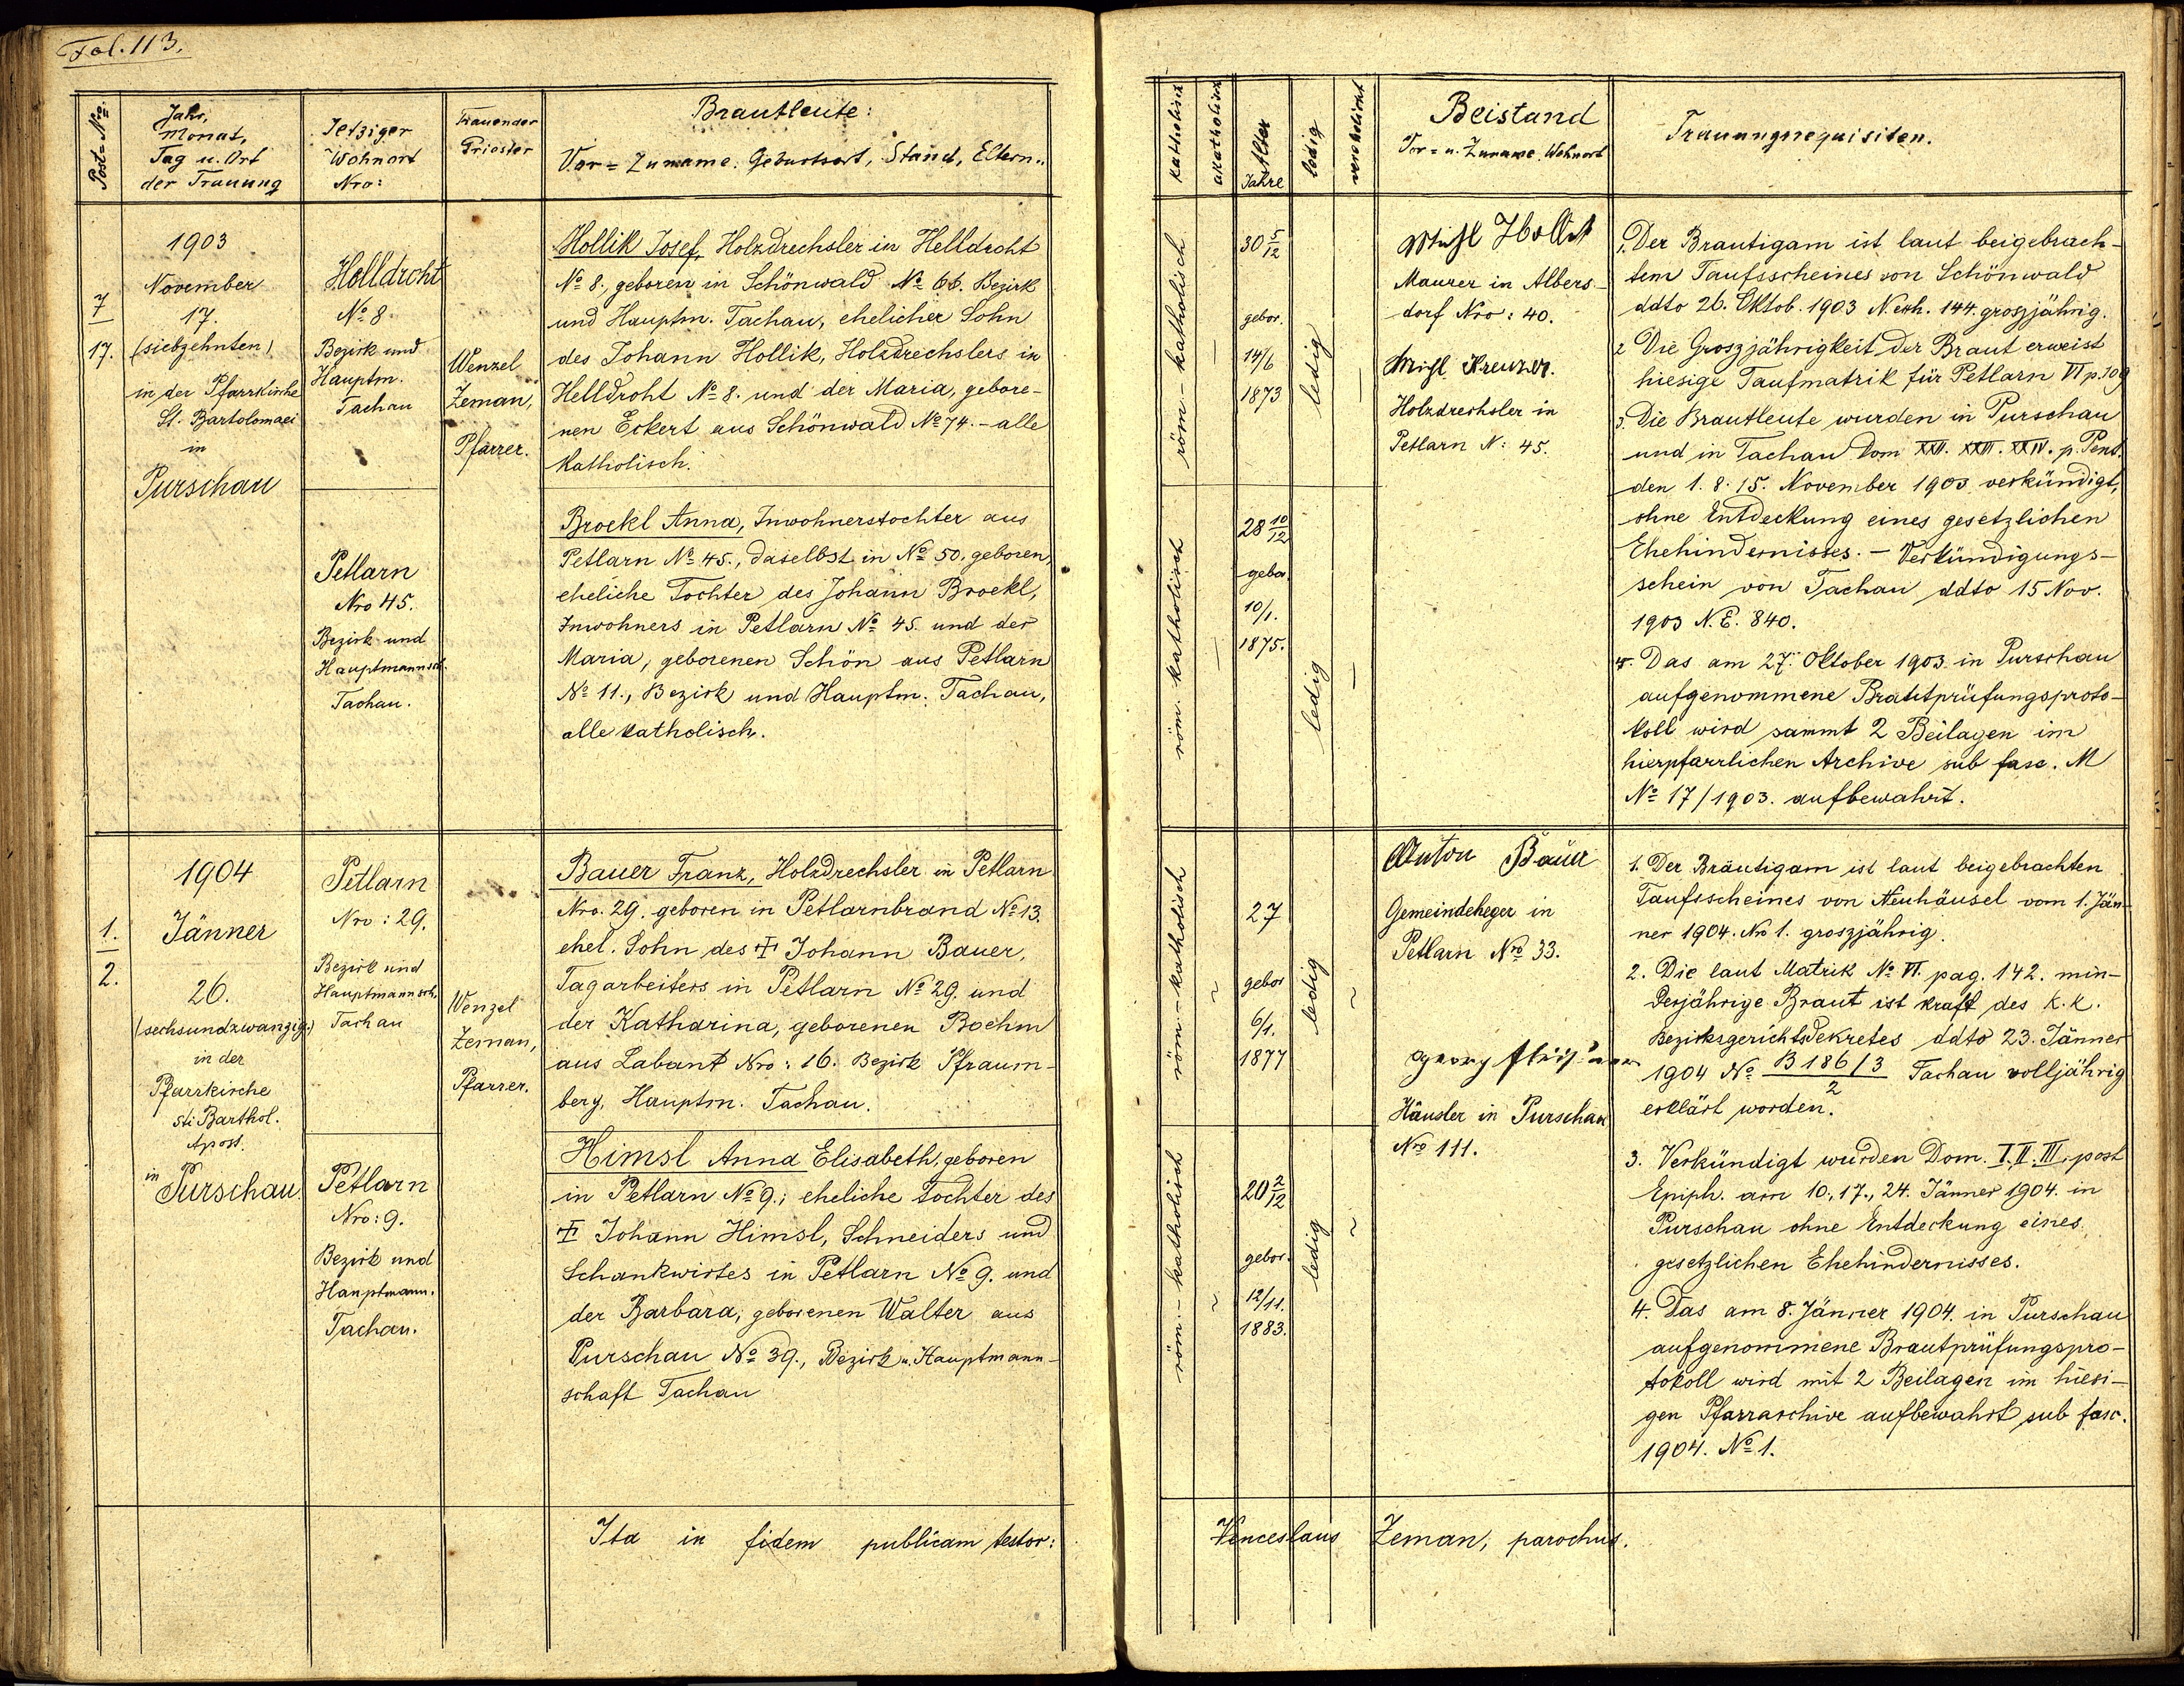 Fol. 113.
Post=No.
Jahr,
Monat,
Tag u. Ort
der Trauung
Jetziger
Wohnort
Nro:
Trauender
Priester
Brautleute:
Vor= Zuname. Geburtsort, Stand, Eltern..
1903
November
7
17.
17.
(siebzehnten)
in der Pfarrkirche
St. Bartolomaei
in
Purschau
Helldroht
No 8.
Bezirk und
Hauptm.
Tachau
Wenzel
Zeman,
Pfarrer.
Hollik Josef, Holzdrechsler in Helldroht
No 8., geboren in Schönwald No 66. Bezirk
und Hauptm. Tachau, ehelicher Sohn
des Johann Hollik, Holzdrechslers in
Helldroht No 8. und der Maria, gebore-
nen Eckert aus Schönwald No 74. - alle
katholisch.
Petlarn
Nro 45.
Bezirk und
Hauptmannsch.
Tachau.
Broekl Anna, Inwohnerstochter aus
Petlarn No 45., daselbst in No 50. geboren,
eheliche Tochter des Johann Broekl,
Inwohners in Petlarn No 45. und der
Maria, geborenen Schön aus Petlarn
No 11., Bezirk und Hauptm. Tachau,
alle katholisch.
1904
Jänner
1.
2.
26.
(sechsundzwanzig.)
in der
Pfarrkirche
Sti Barthol.
Apost.
in Purschau.
Petlarn
Nro: 29.
Bezirk und
Hauptmannsch.
Tachau
Wenzel
Zeman,
Pfarrer.
Bauer Franz, Holzdrechsler in Petlarn
Nro. 29. geboren in Petlarnbrand No 13.
ehel. Sohn des † Johann Bauer,
Tagarbeiters in Petlarn No 29. und
der Katharina, geborenen Boehm
aus Labant Nro: 16. Bezirk Pfraum-
berg, Hauptm. Tachau.
Petlarn
Nro: 9.
Bezirk und
Hauptmann.
Tachau.
Himsl Anna Elisabeth, geboren
in Petlarn No 9.; eheliche Tochter des
† Johann Himsl, Schneiders und
Schankwirtes in Petlarn No 9. und
der Barbara, geborenen Walter aus
Purschau No 39., Bezirk u. Hauptmann-
schaft Tachau
Ita in fidem publicam testor:
katholisch
akatholisch
Alter
Jahre
ledig
verehelicht
Beistand
Vor= u. Zuname. Wohnort
Trauungsrequisiten.
röm-katholisch
—
30 5/12
gebor.
14/6
1873
ledig
—
Maurer in Albers-
dorf Nro: 40.
Michl Kreuzer.
Holzdrechsler in
Petlarn N: 45.
röm. katholisch
—
28 10/12
gebor.
10/1.
1875.
ledig
—
1. Der Brautigam ist laut beigebrach-
tem Taufsscheines von Schönwald
ddto 26. Oktob. 1903 N. exh. 144. groszjährig.
2 Die Groszjährigkeit der Braut erweist
hiesige Taufmatrik für Petlarn VI p. 109
3. Die Brautleute wurden in Purschau
und in Tachau Dom XXII. XXIII. XXIV. p. Pent.
den 1. 8. 15. November 1903 verkündigt,
ohne Entdeckung eines gesetzlichen
Ehehindernisses. - Verkündigungs-
schein von Tachau ddto 15 Nov.
1903 N. E. 840.
4. Das am 27. Oktober 1903 in Purschau
aufgenommene Brautprüfungsproto-
koll wird sammt 2 Beilagen im
hierpfarrlichen Archive sub fasc. M
No 17/1903. aufbewahrt.
röm-katholisch
~
27
gebor
6/1.
1877
ledig
~
Anton Bauer
Gemeindeheger in
Petlarn No 33.
Georg
Häusler in Purschau
No 111.
röm.-katholisch
~
20 2/12
gebor.
12/11.
1883.
ledig
~
1. Der Bräutigam ist laut beigebrachten
Taufsscheines von Neuhäusel vom 1. Jän-
ner 1904. No 1. groszjährig.
2. Die laut Matrik No VI. pag. 142. min-
derjährige Braut ist kraft des k.k.
Bezirksgerichtsdekretes ddto 23. Jänner
1904 No B 186/3 / 2 Tachau volljährig
erklärt worden.
3. Verkündigt wurden Dom. I. II. III. post
Epiph. am 10., 17., 24. Jänner 1904. in
Purschau ohne Entdeckung eines
gesetzlichen Ehehindernisses.
4. Das am 8. Jänner 1904. in Purschau
aufgenommene Brautprüfungspro-
tokoll wird mit 2 Beilagen im hiesi-
gen Pfarrarchive aufbewahrt sub fasc.
1904. No 1.
Venceslaus Zeman, parochus.